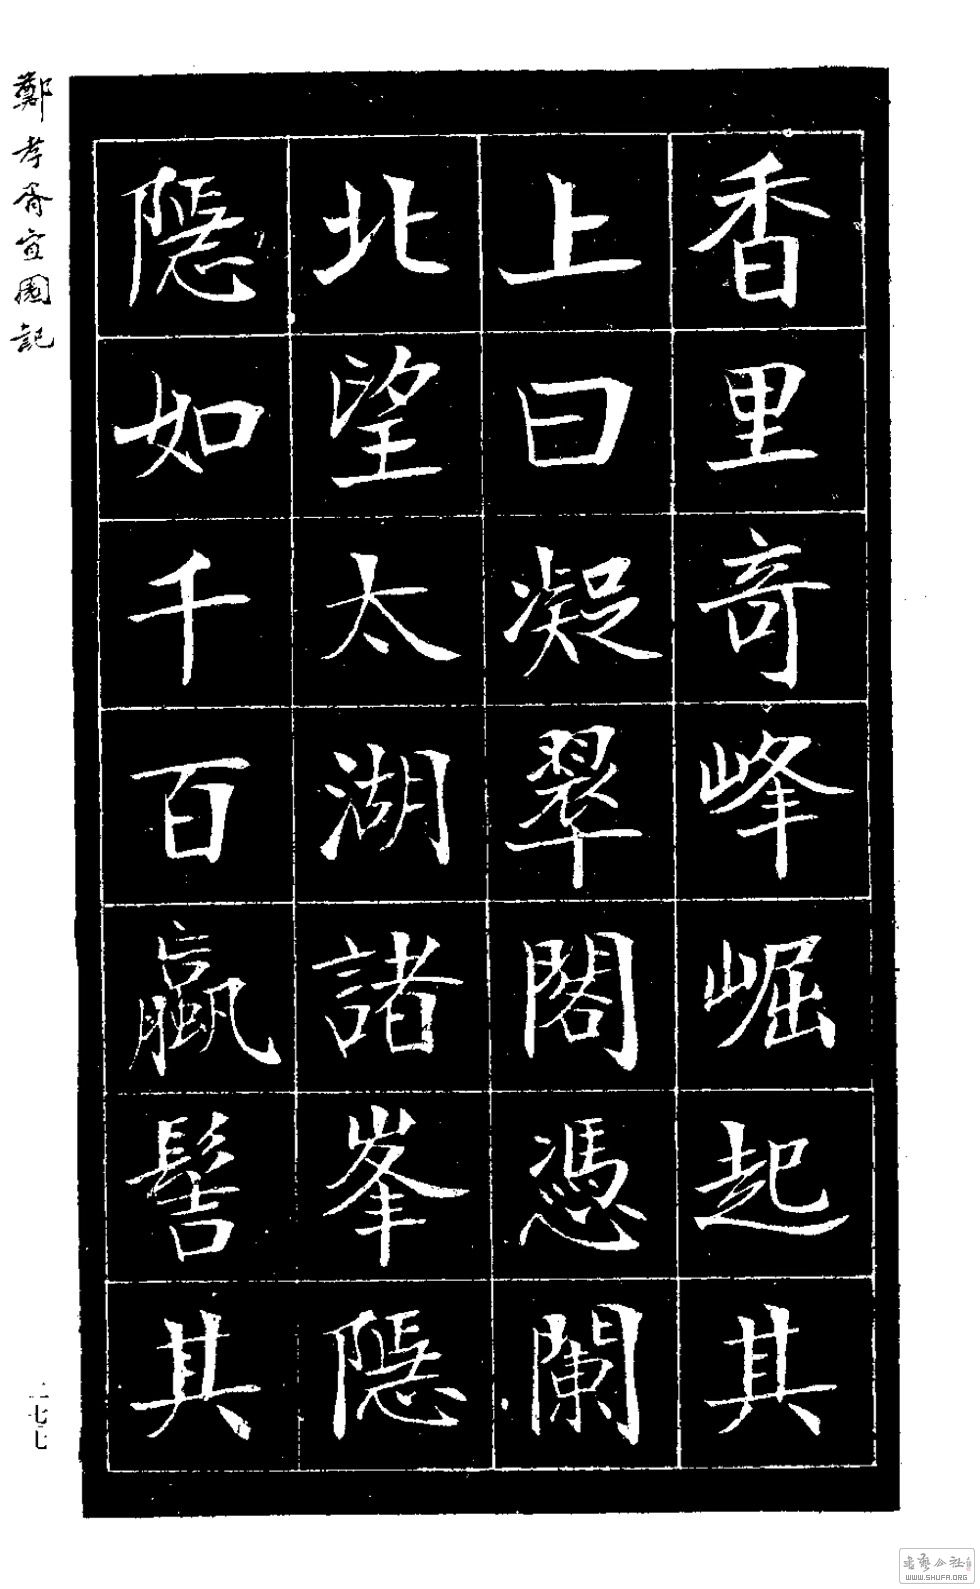 香里奇峰崛起其
上曰凝翠閣憑闌
北望太湖諸峯隱
隱如千百螺髻其
鄭孝胥宜園記
二七七
WWW.SHUFA.ORG